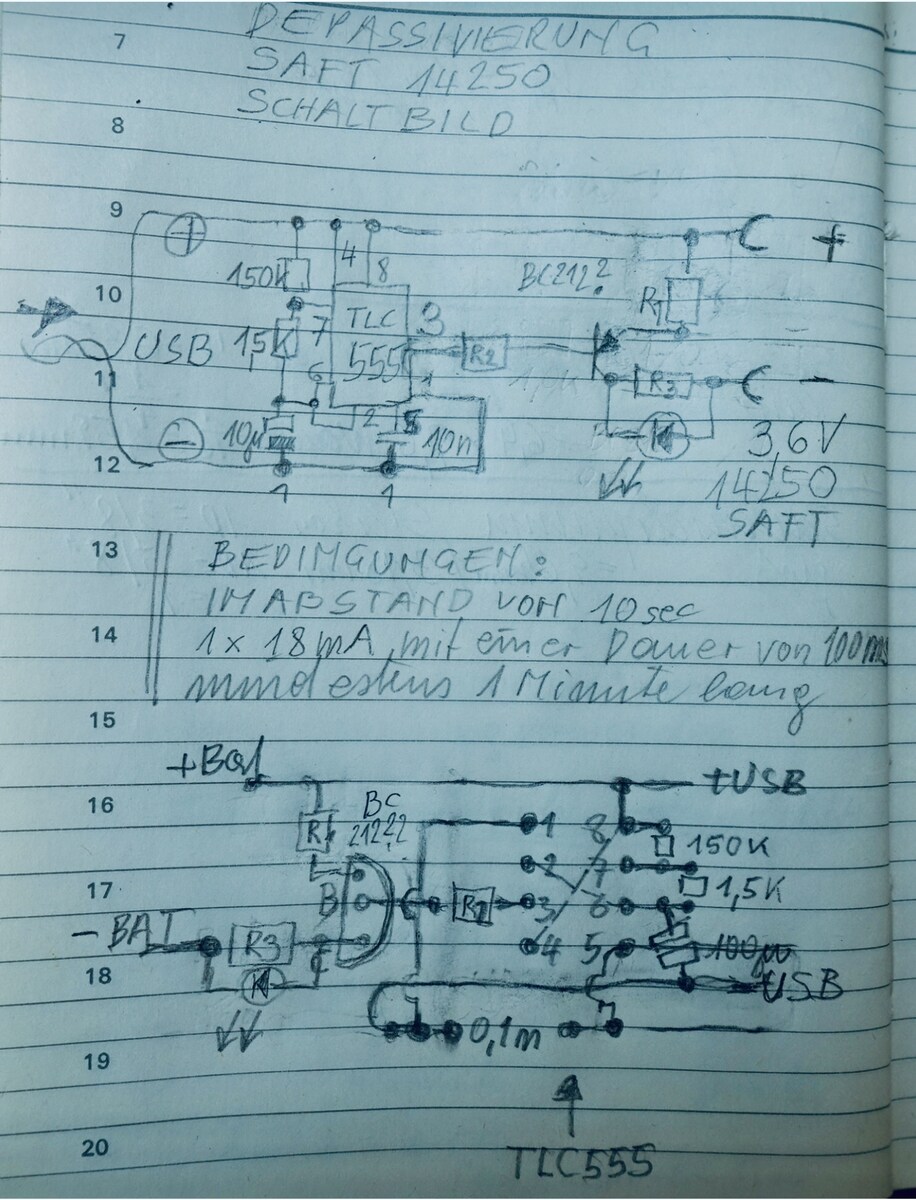 DEPASSIVIERUNG
7
SAFT 14250
SCHALTBILD
8
9
+ +
4 8
150K
BC212?
10
R1
TLC 3
7
USB 1,5K 555 R2
11
6 1
R3 −
2 5
− 10µ 10n
3,6V
12
14250
1 1
SAFT
13
BEDINGUNGEN:
IM ABSTAND VON 10sec
14
1x 18mA, mit einer Dauer von 100ms
mindestens 1 Minute lang
15
+Bat +USB
16
BC
R1 212?? 1 8
150K
2 7
17
B R2 3 6 1,5K
-BAT R3 C 4 5 100µ
18
-USB
0,1m
19
TLC555
20